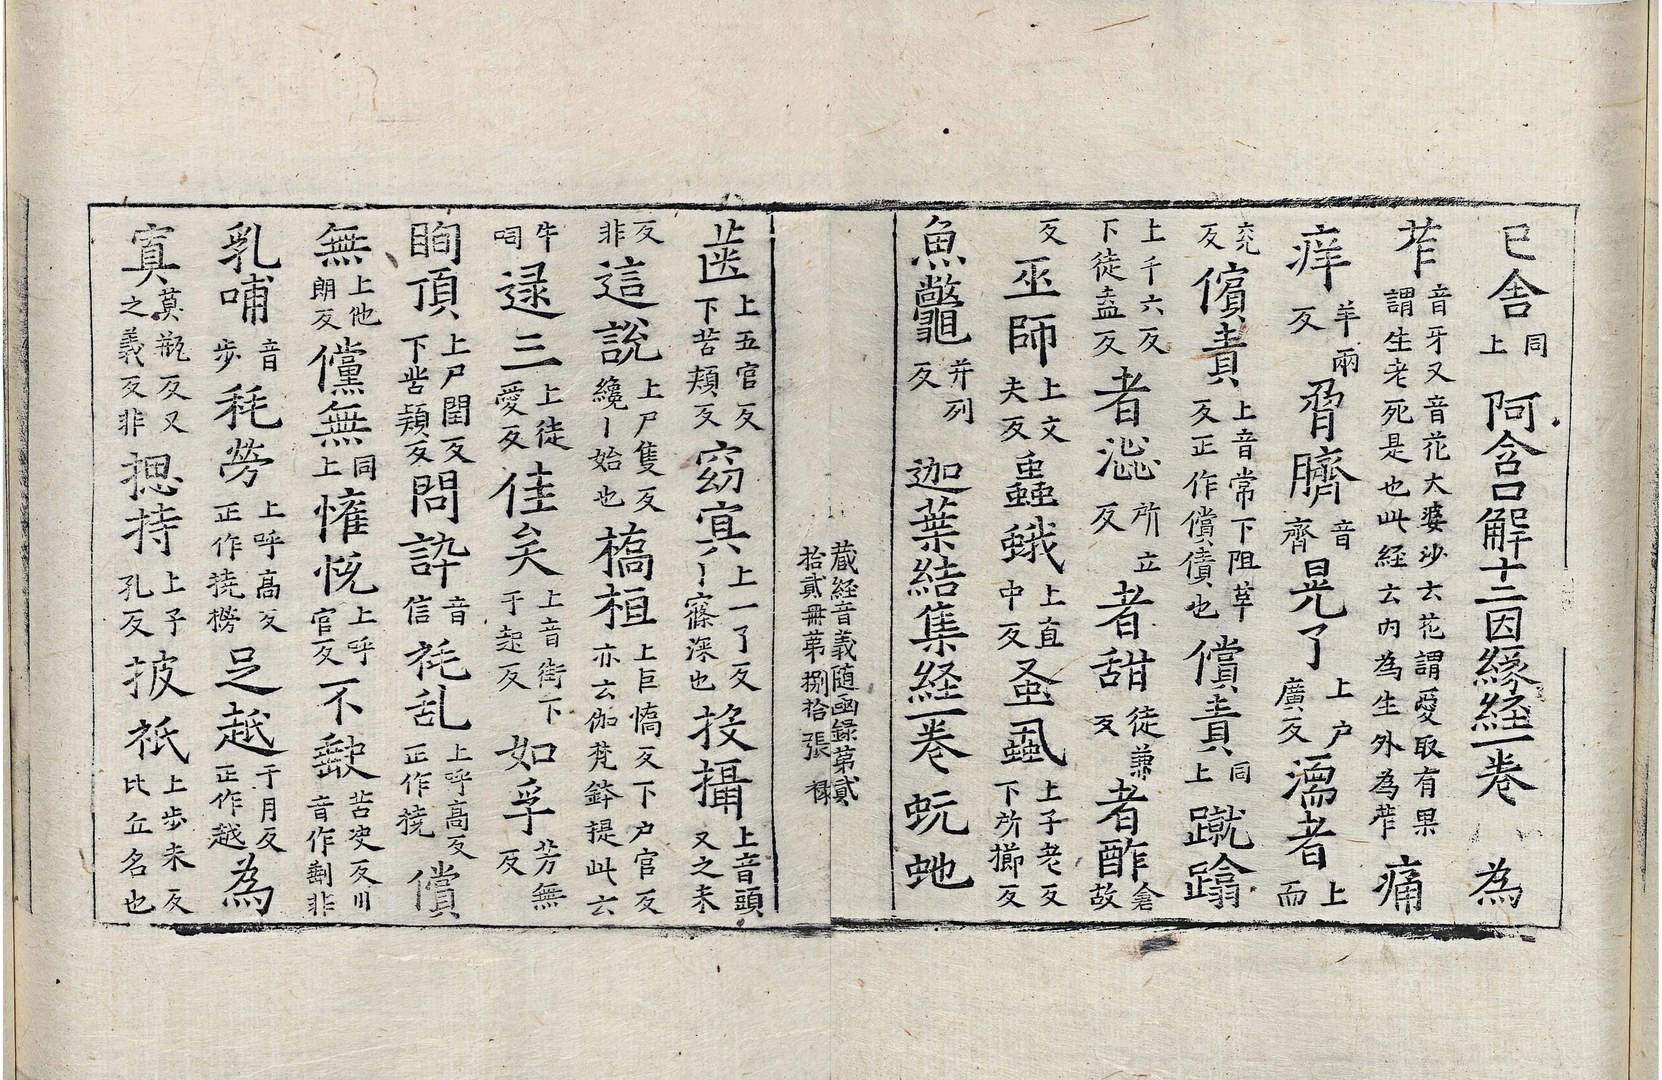 巳舎同上　阿含口解十二因縁経一卷　為
苲音牙又音花大婆沙云花謂愛取有果謂生老死是也此経云内為生外為苲痛
痒羊兩反脅臍音齊晃了上户廣反濡者上而
兖反償責上音常下阻草反正作償債也償責同上蹴蹹
上千六反下徒盍反者澁所立反者甜徒兼反者酢倉故
反巫師上文夫反蟲蛾上直中反蚤虱上子老反下所擳反
魚鼈并列反　迦葉結集経一卷　蚖虵
蔵経音義随函録第貳拾貳冊苐捌拾張
齒上五官反下苦頬反窈㝠上一了反〡窱深也投攝上音頭又之未
反非這說上尸隻反纔〡始也橋桓上巨憍反下户官反亦云伽梵鉢提此云
牛呞逯三上徒愛反佳矣上音街下于起反如孚芳無反
眴頂上尸閏反下苦頬反問誶音信秏乱上呼高反正作撓償
無上他朗反儻無同上㩲恱上呼官反不㱁苦吏反川音作劃非
乳哺音步秏勞上呼高反正作撓㨍足越于月反正作越為
㝠莫瓶反又之義反非揔持上子孔反披祇上步未反比丘名也